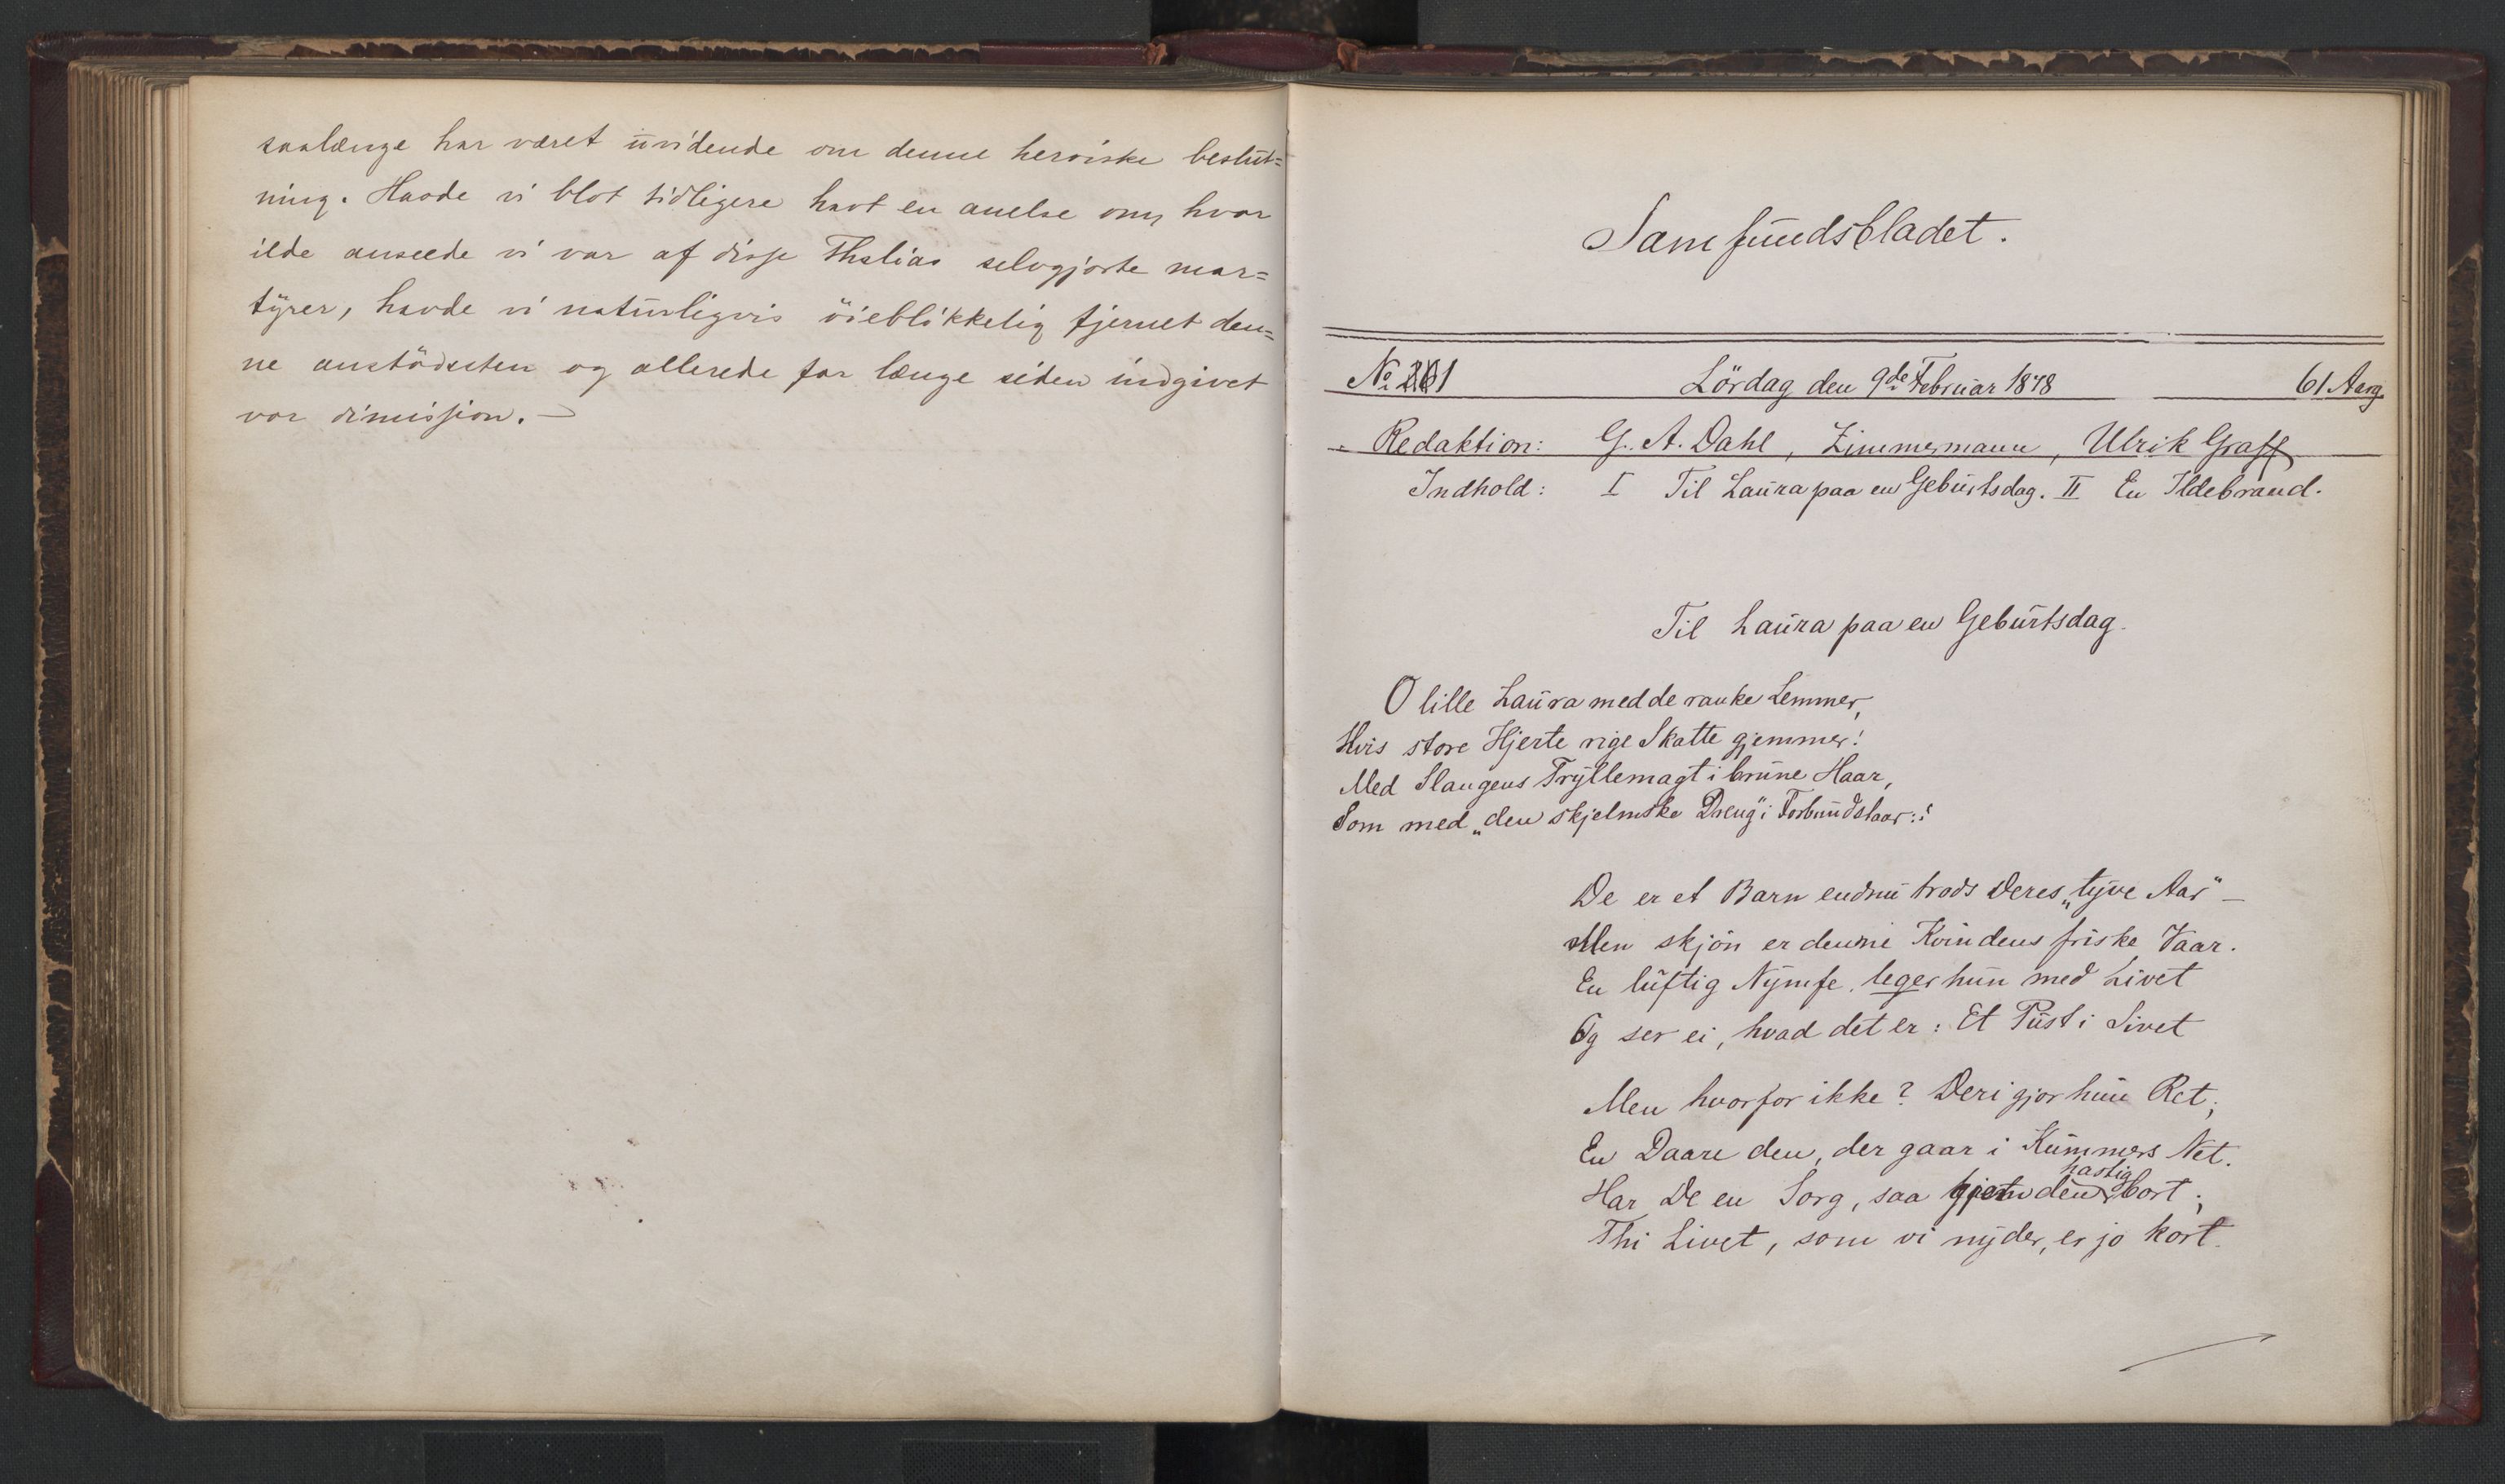 saalænge har været uvidende om denne heroiske beslut=
ning. Havde vi blot tidligere havt en anelse om, hvor
ilde anseede vi var af disse Thalias selvgjorte mar=
tyrer, havde vi naturligvis öieblikkelig fjernet den=
ne anstödssten og allerede for længe siden indgivet
vor dimission. —
Samfundsbladet.
No
Lördag den 9de Februar 1878
61 Aarg.
Redaktion: G. A. Dahl, Zimmermann, Ulrik Graff
Indhold: I Til Laura paa en Geburtsdag. II En Ildebrand.
Til Laura paa en Geburtsdag.
O lille Laura med de ranke Lemmer,
Hvis store Hjerte rige Skatte gjemmer!
Med Slangens Tryllemagt i brune Haar,
Som med „den skjelmske Dreng" i Forbund staar:!
De er et Barn endnu trods Deres „tyve Aar" —
Men skjön er denne Kvindens friske Vaar.
En luftig Nymfe, leger hun med Livet
Og ser ei, hvad det er: Et Pust i Sivet
Men hvorfor ikke? Deri gjor hun Ret;
En Daare den, der gaar i Kummers Net.
Har De en Sorg, saa den hastig bort;
Thi Livet, som vi nyder, er jo kort.